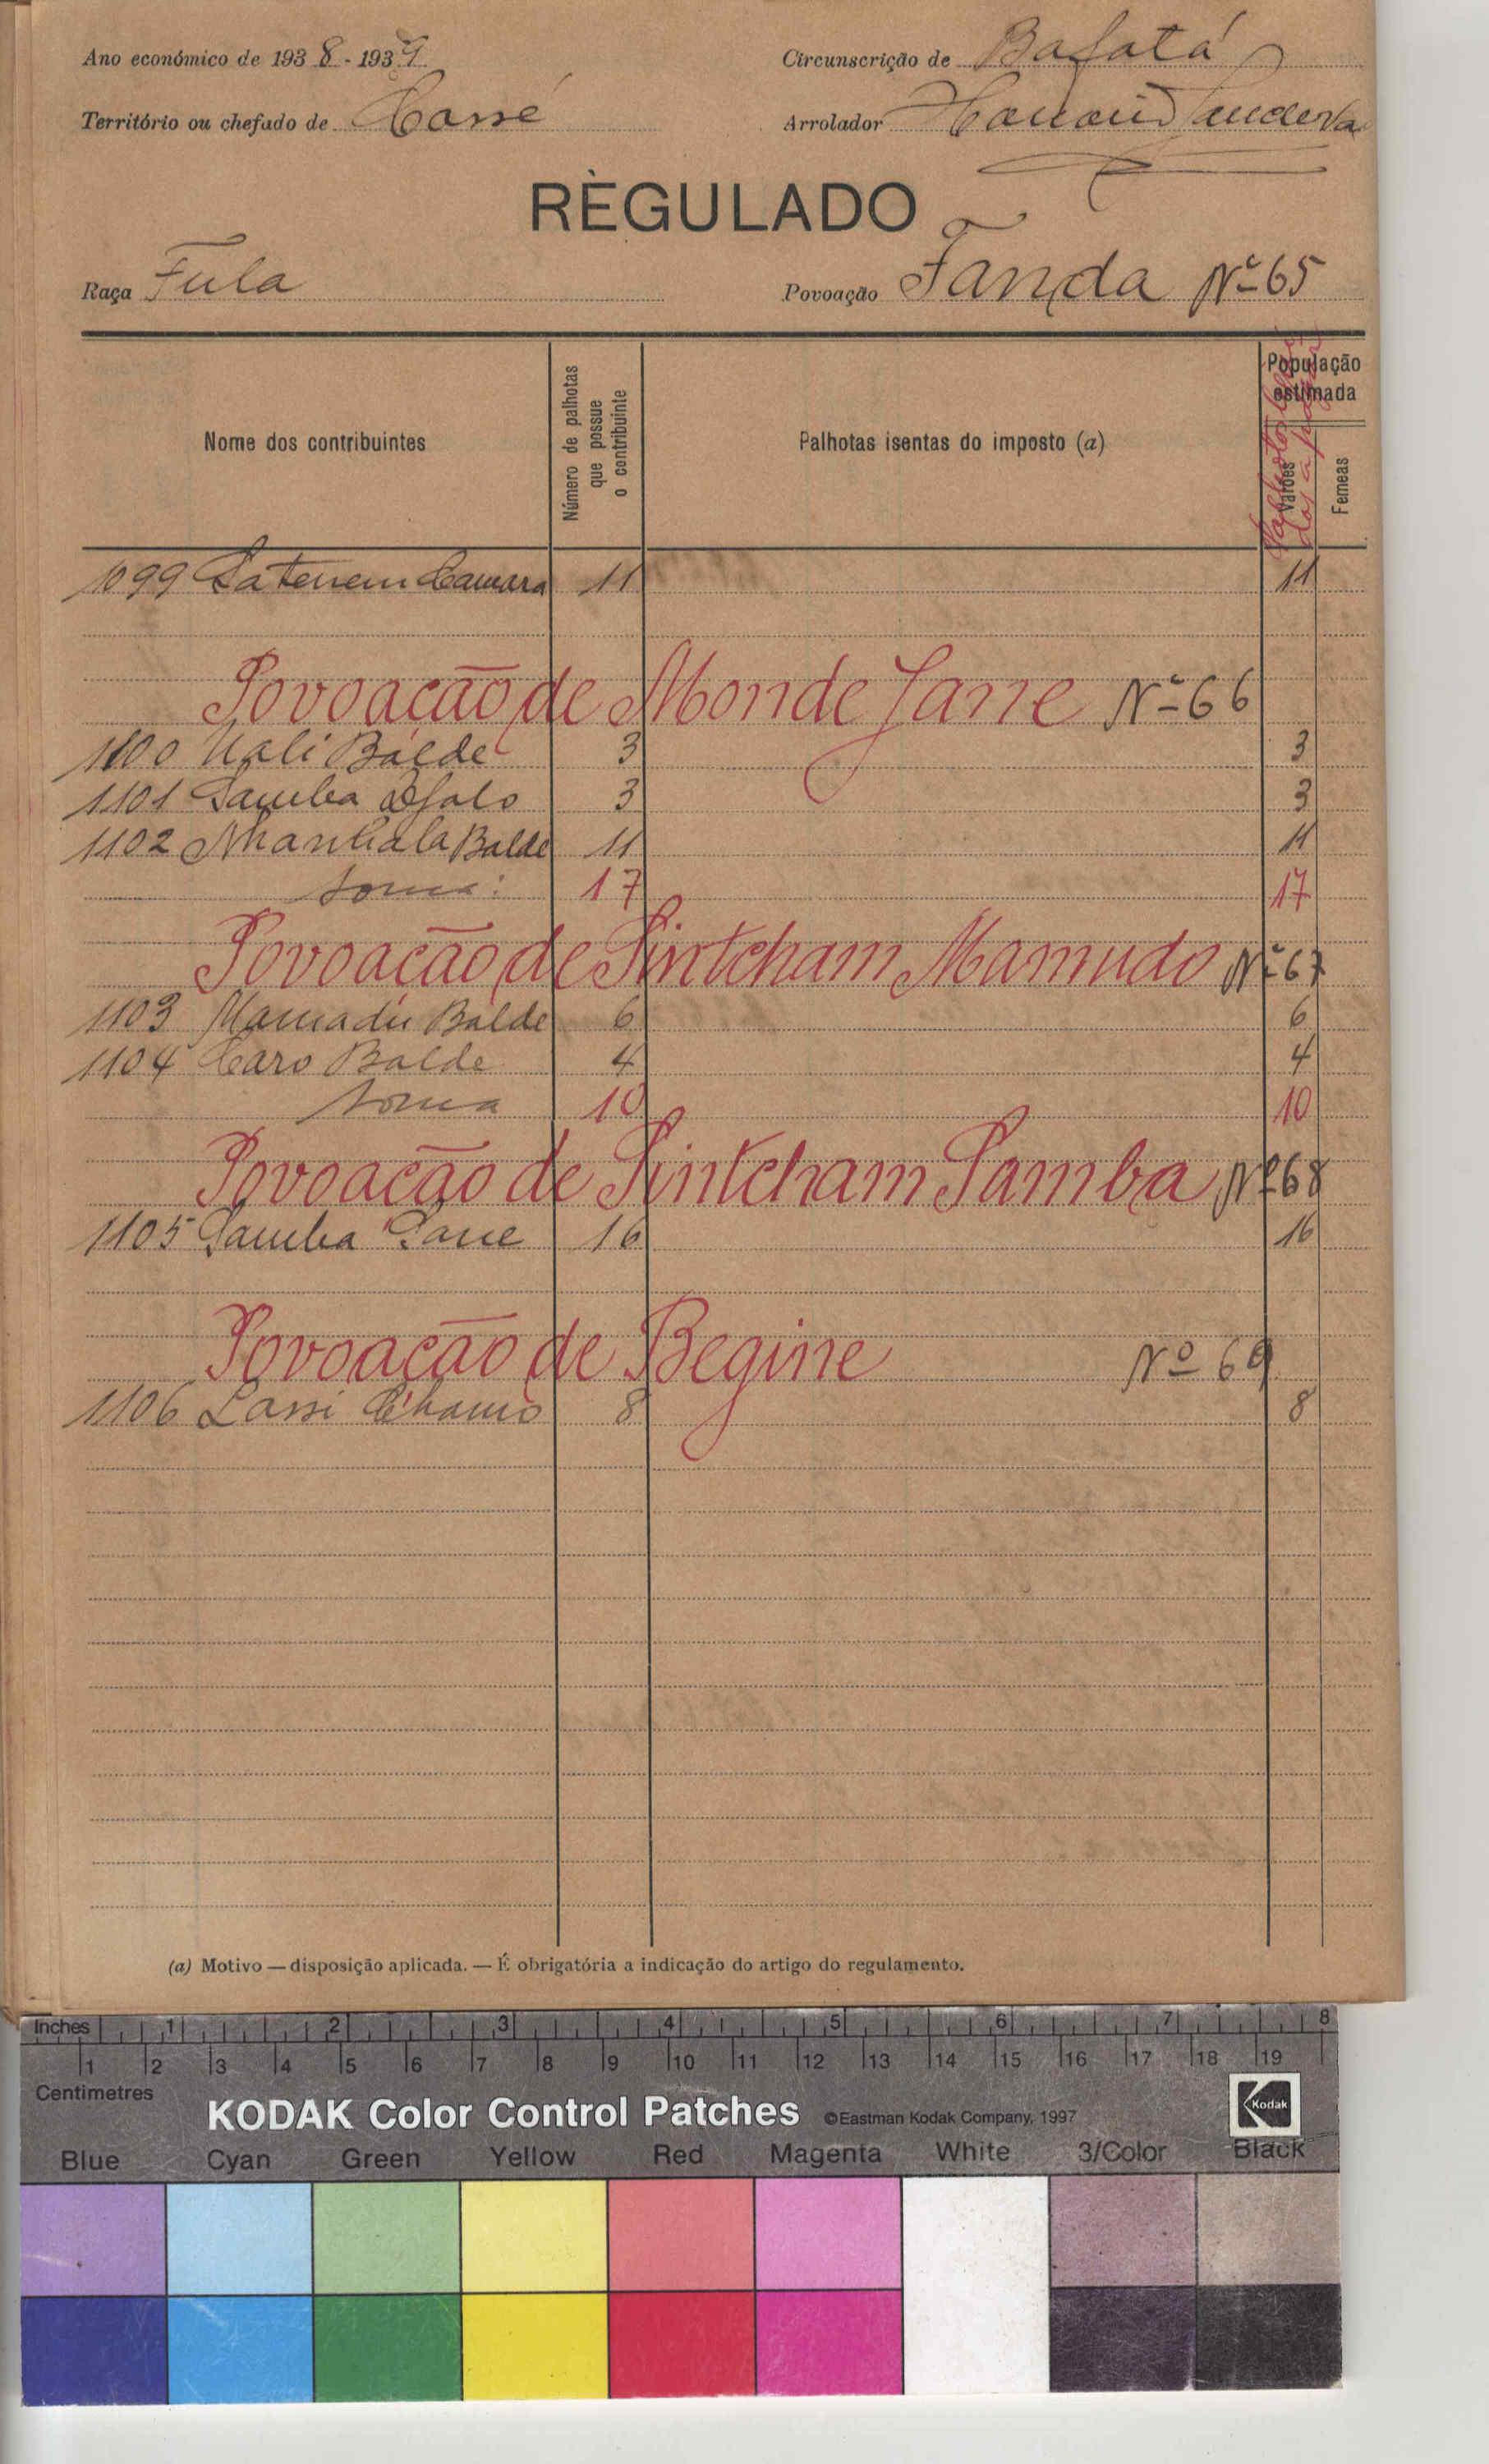 Ano económico de 1938-1939
Circunscrição de Bafatá
Território ou chefado de Cossé
Arrolador
RÈGULADO
Raça Fula
Povoação Fanda Nº 65
Nome dos contribuintes
Número de palhotas que possue o contribuinte
Palhotas isentas do imposto (a)
População estimada
Varões
Femeas
1099 Camara 11 11
Povoação de Monde Jane Nº 66
1100 Uali Balde 3 3
1101 Samba Djalo 3 3
1102 Balde 11 11
Soma: 17 17
Povoação de Sintcham Mamudo Nº 67
1103 Mamadú Balde 6 6
1104 Caro Balde 4 4
Soma 10 10
Povoação de Sintcham Samba Nº 68
1105 Samba Sane 16 16
Povoação de Begine Nº 69
1106 Lassi 8 8
(a) Motivo — disposição aplicada. — É obrigatória a indicação do artigo do regulamento.
Inches 1 2 3 4 5 6 7 8
1 2 3 4 5 6 7 8 9 10 11 12 13 14 15 16 17 18 19
Centimetres
KODAK Color Control Patches ©Eastman Kodak Company, 1997 Kodak
Blue Cyan Green Yellow Red Magenta White 3/Color Black